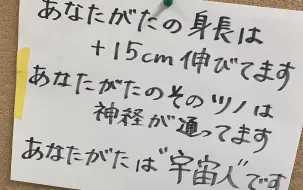 あなたがたの身長は
+15cm 伸びてます
あなたがたのそのツノは
神経が通ってます
あなたがたは"宇宙人"です